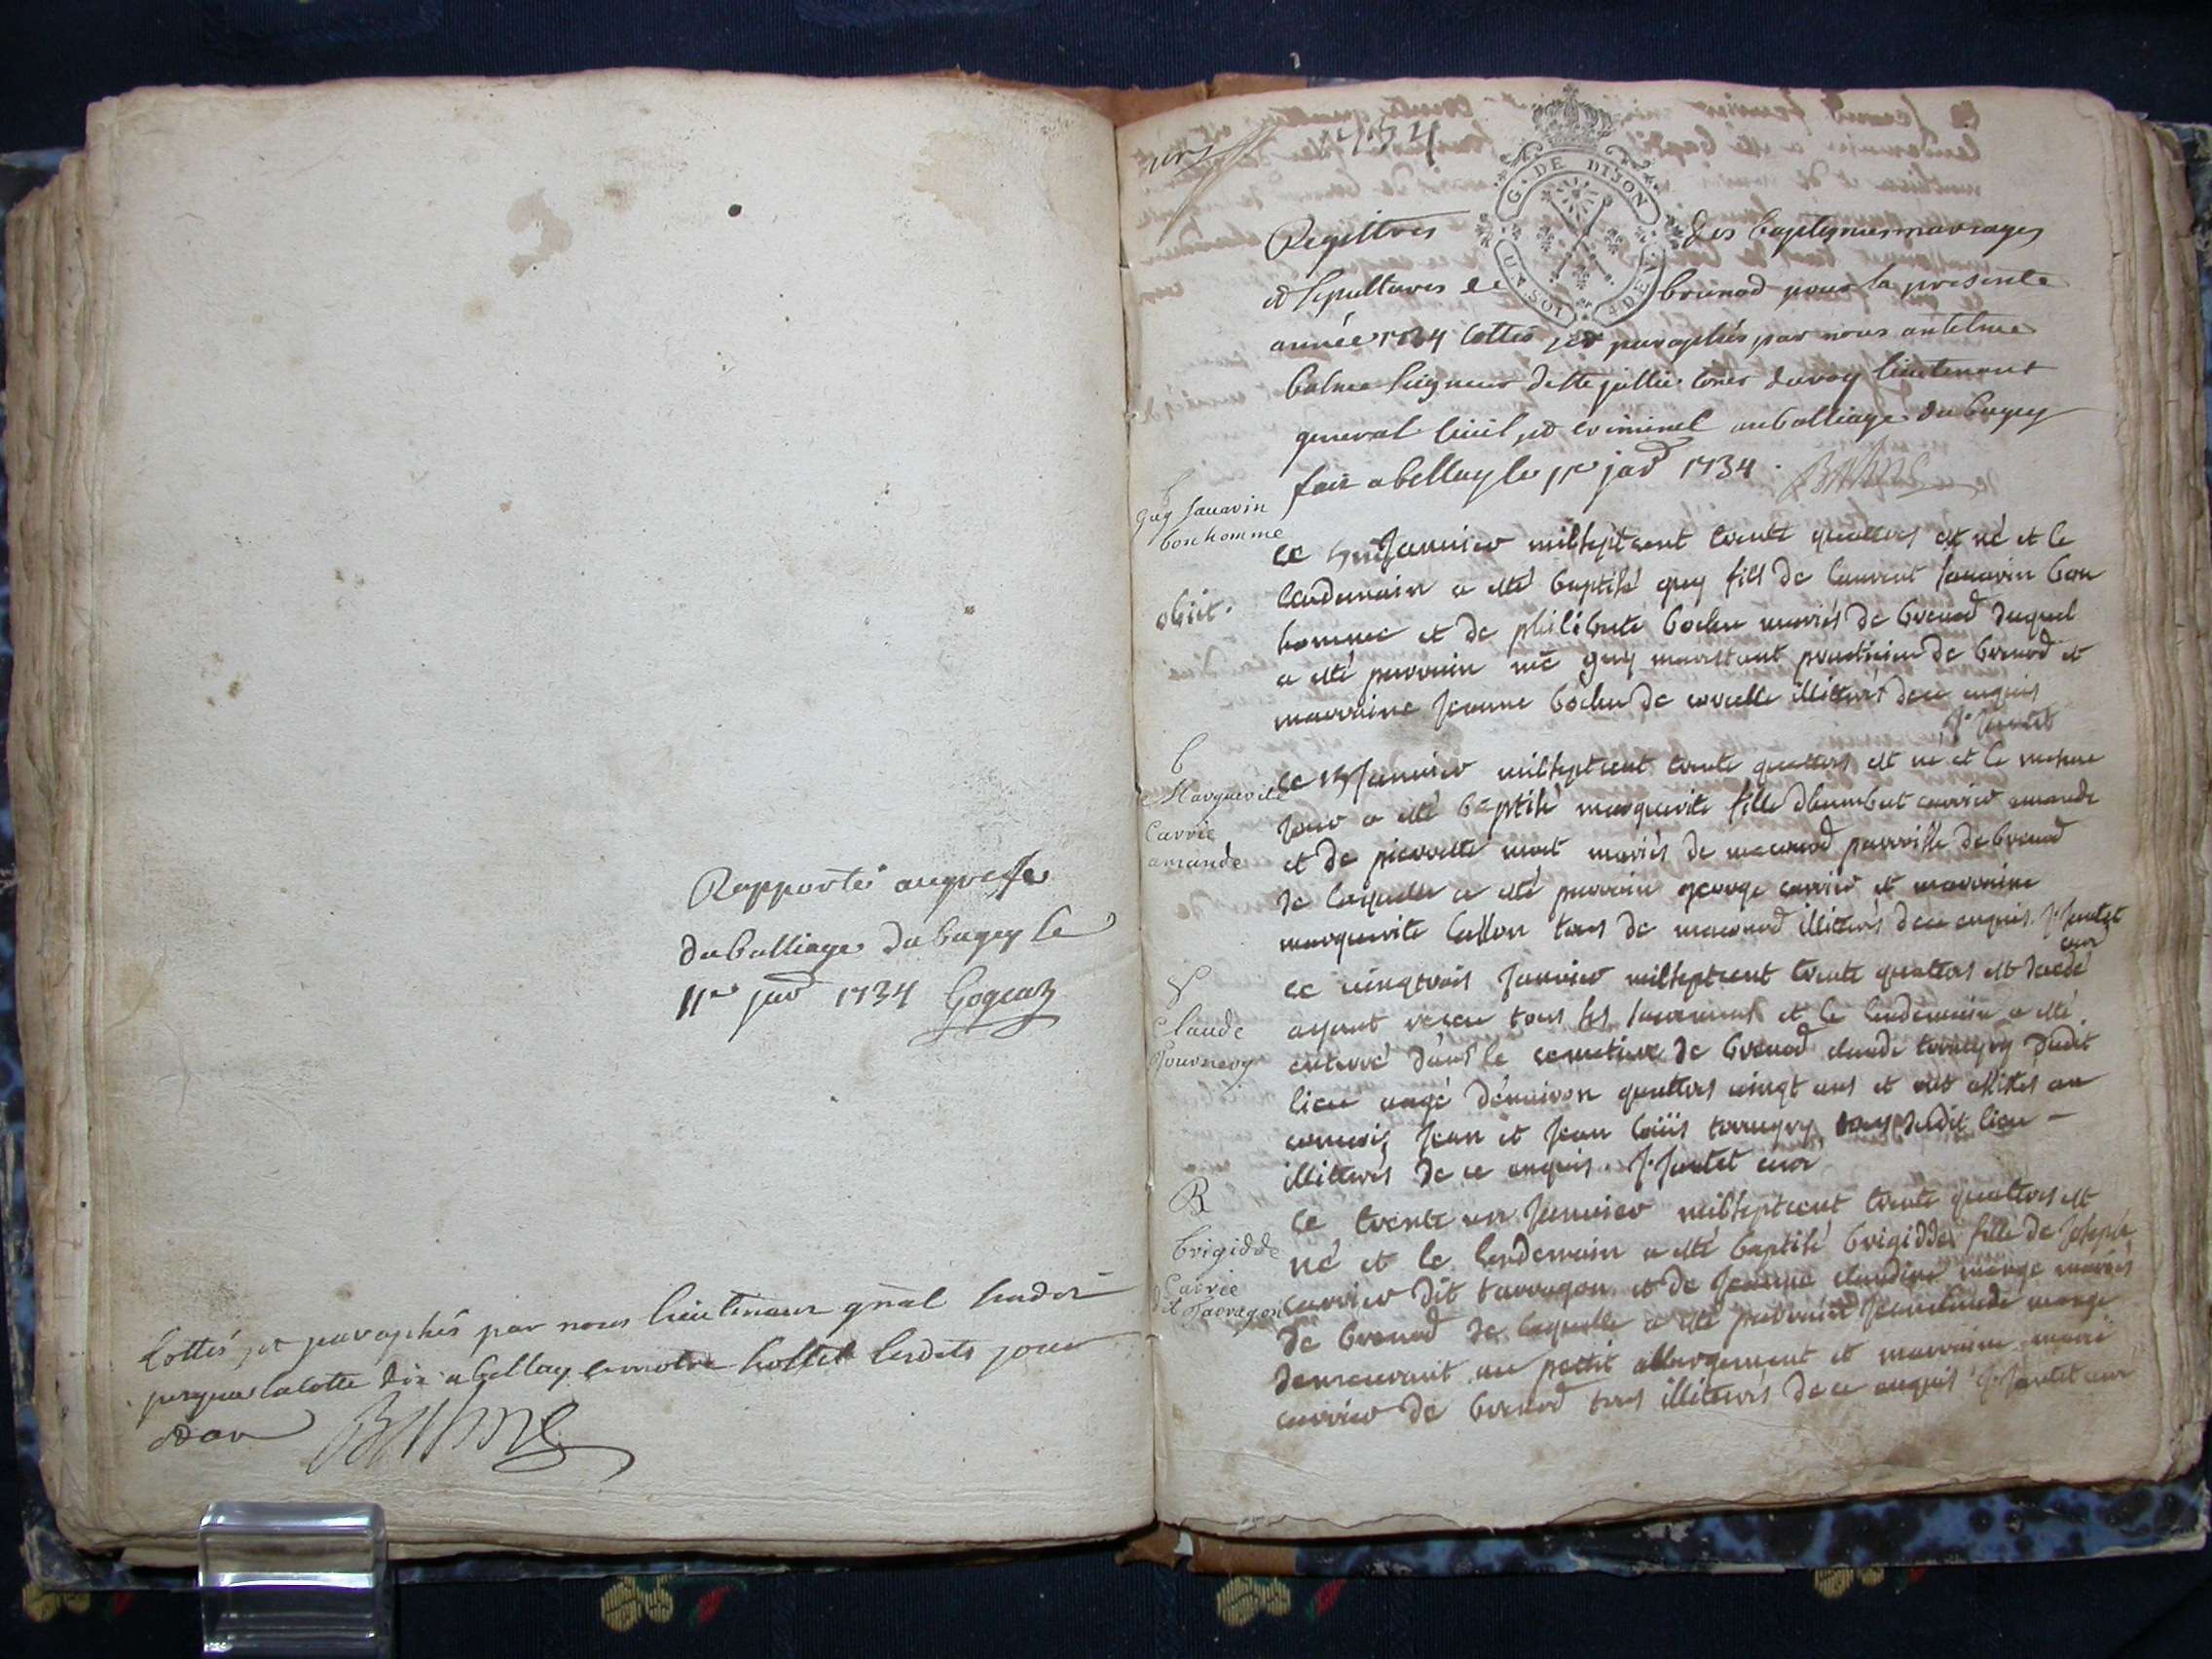 Rapporté au greffe
du balliage du bugey le
11e jad 1734 Gogeaz
Cottés et paraphés par nous lieutenant gñal susdit
jusques la cotte dix a bellay en notre hostel lesdits jour
et an Balme
1734
G. DE DIJON
Registres des baptesmes mariages
et sepultures de brenod pour la presente
année 1734 cottés et paraphés par nous antelme
balme seigneur de ste jullie coner du roy lieutenant
general civil et criminel au balliage du bugey
fait a bellay le 11e jad 1734. Balme
b
guy sauarin
bonhomme
obiit.
ce Januier milseptcent trente quattres est né et le
lendemain a esté baptisé guy fils de laurent sauarin bon
homme et de philiberte bochu mariés de brenod duquel
a esté parrain me guy marestant practicien de brenod et
marraine Jeanne bochu de corcelle illiterés de ce enquis
J. Jantet
b
Marguerite
Carrie
amande
ce 15 Januier milseptcent trente quattres est né et le mesme
Jour a esté baptisé marguerite fille dhumbert carrier amande
et de pierrette mort mariés de maconod parroisse de brenod
de laquelle a esté parrain george carrier et marraine
marguerite tous de maconod illiterés de ce enquis. J. Jantet
cure
S
Claude
Tournery
ce vingtrois Januier milseptcent trente quattres est decedé
ayant receu tous les sacremens et le lendemain a esté
enterré dans le cemetiere de brenod claude dudit
lieu aagé denuiron quattres vingt ans et ont assistés au
conuois Jean et Jean loüis tous dudit lieu –
illiterés de ce enquis. J. Jantet cure
B
brigidde
Carrie
dit Tarragon
ce trente un Januier milseptcent trente quattres est
né et le lendemain a esté baptisé brigidde fille de Joseph
carrier dit tarragon et de Jeanne claudine monge mariés
de brenod de laquelle a esté parrain Jeanclaude monge
demeurant au petit abbergement et marraine marie
carrier de brenod tous illiterés de ce enquis J. Jantet cure